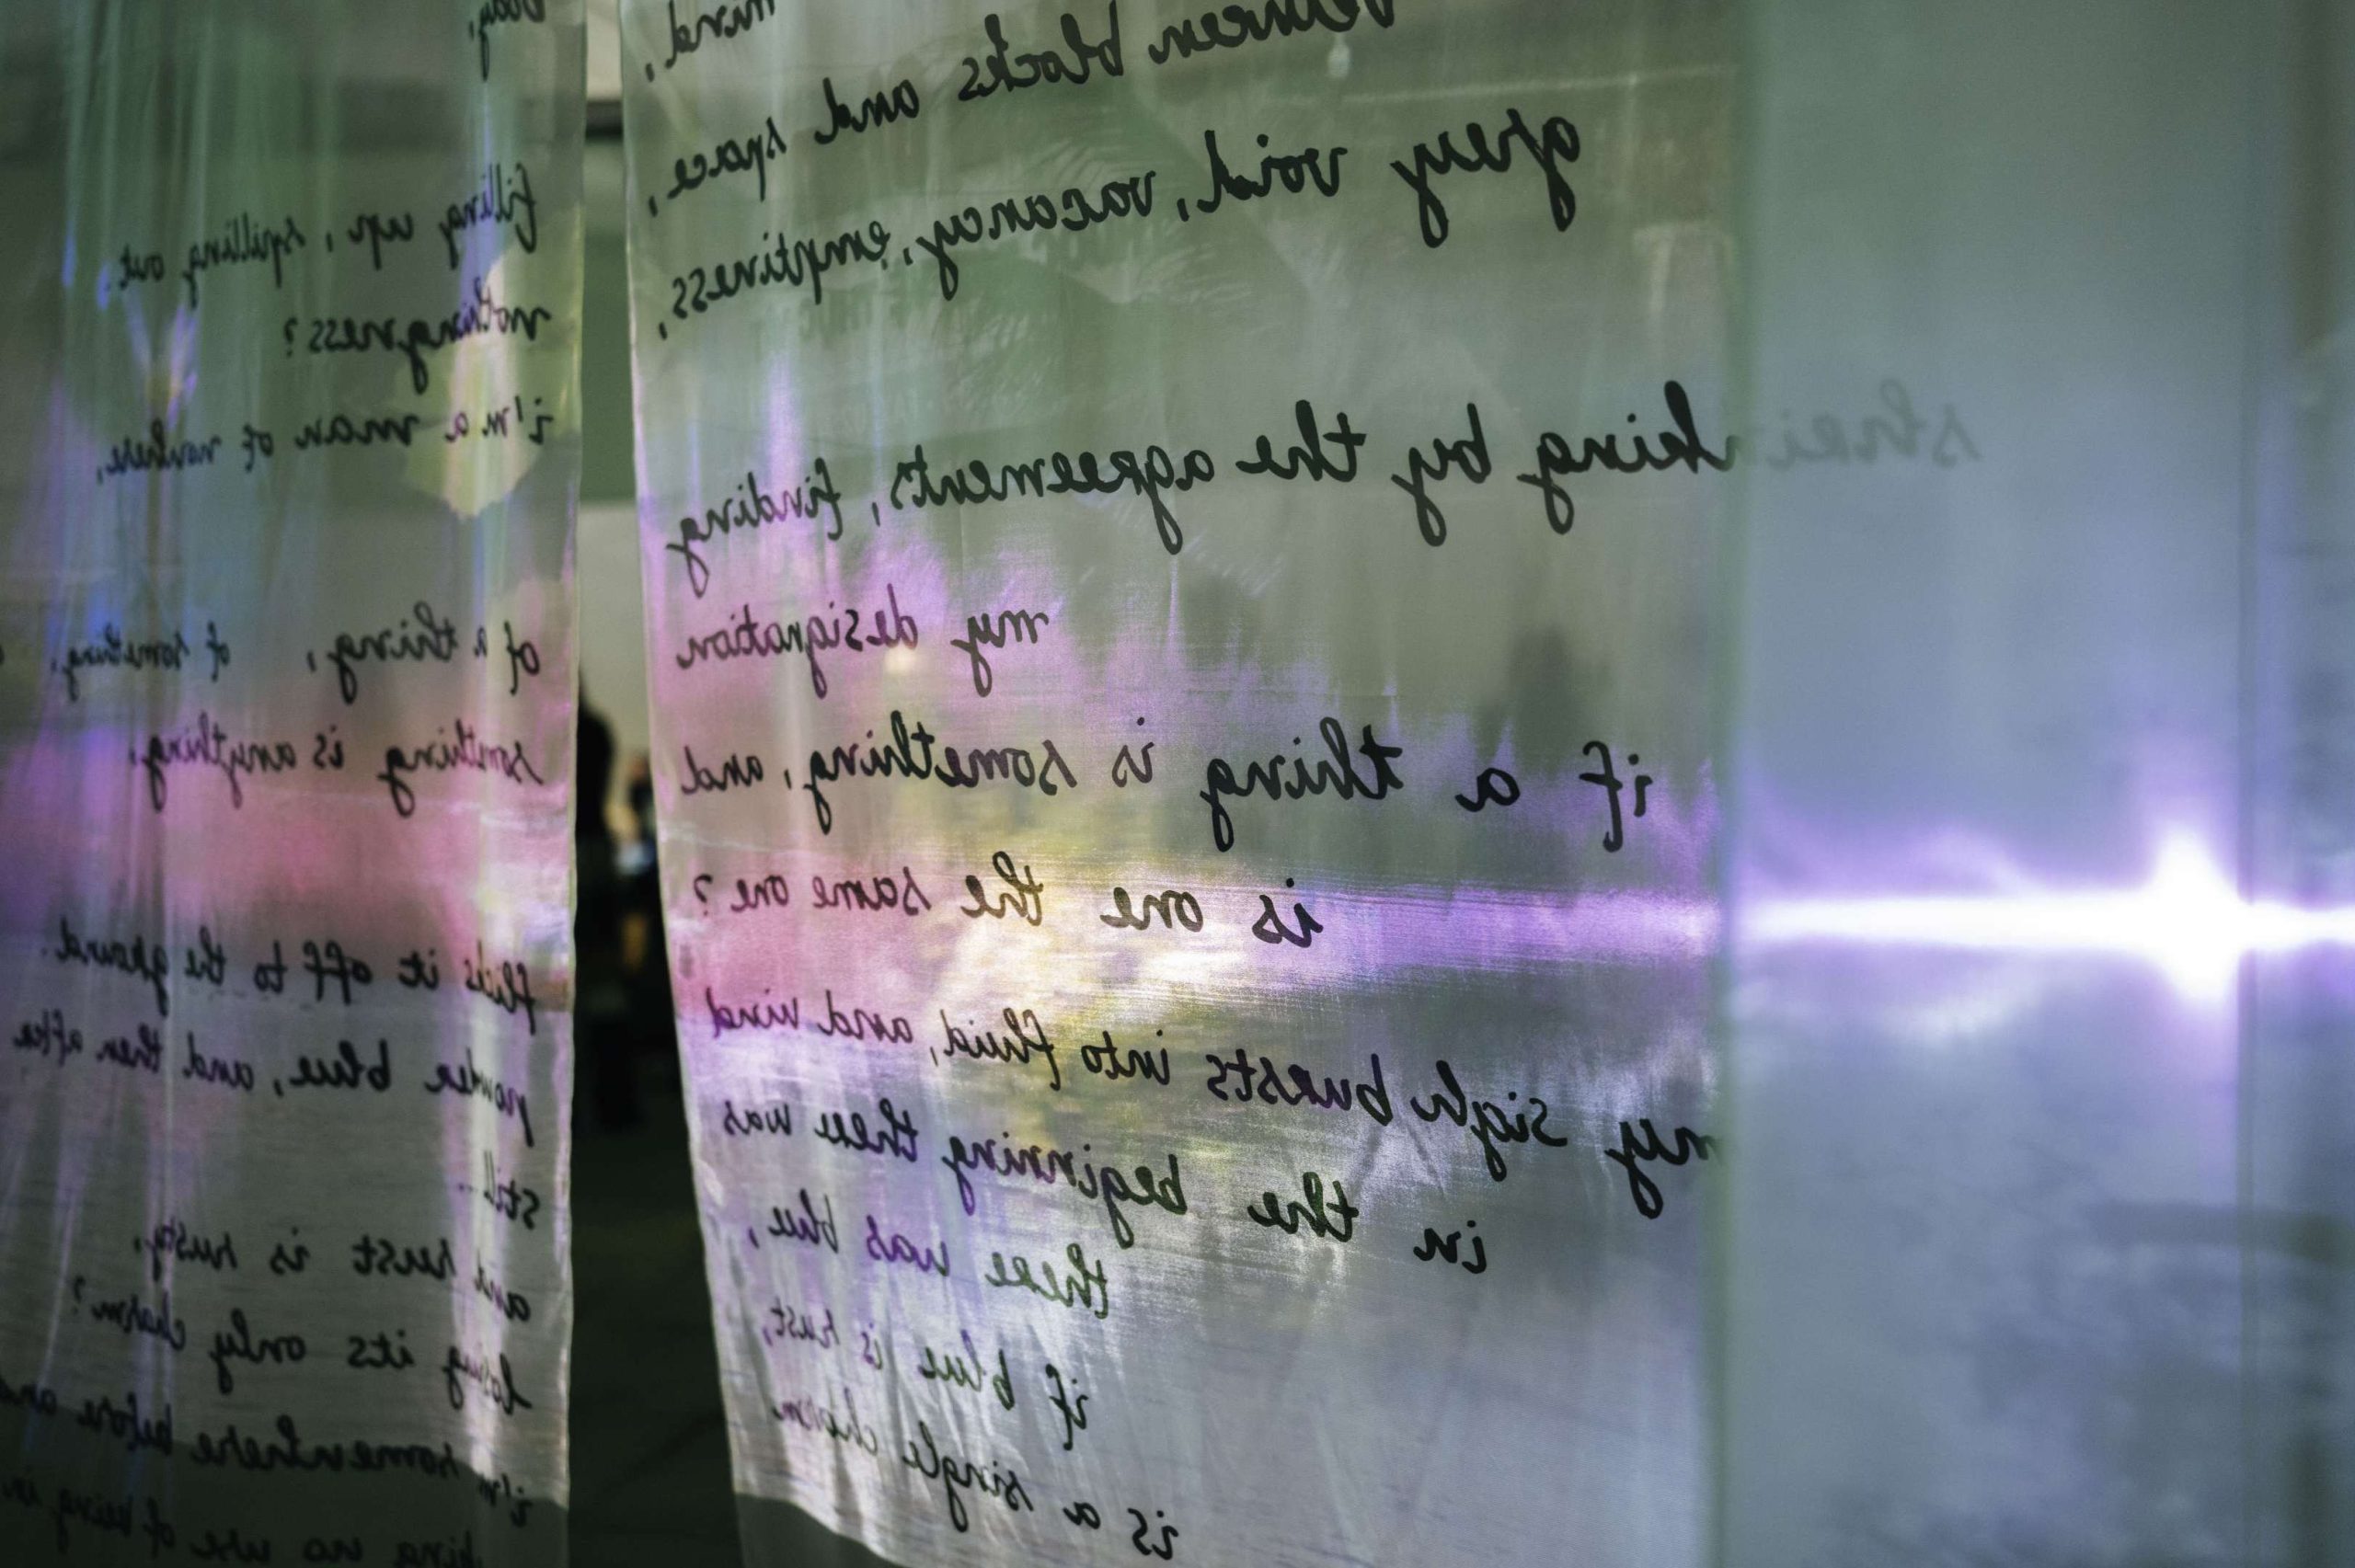 mind,
between blocks and space,
grey void, vacancy, emptiness,
by the agreements, finding
my designation
if a thing is something, and
is one the same one?
my sigh bursts into fluid, and wind
in the beginning there was
there was blue,
if blue is rust,
is a single charm
body,
filling up, spilling out.
nothingness?
i'm a man of nowhere,
of a thing, of something,
somthing is anything,
flicks it off to the ground.
blue, and then after
still...
and rust is rusty,
losing its only charm?
i'm somewhere before and
no use of being in